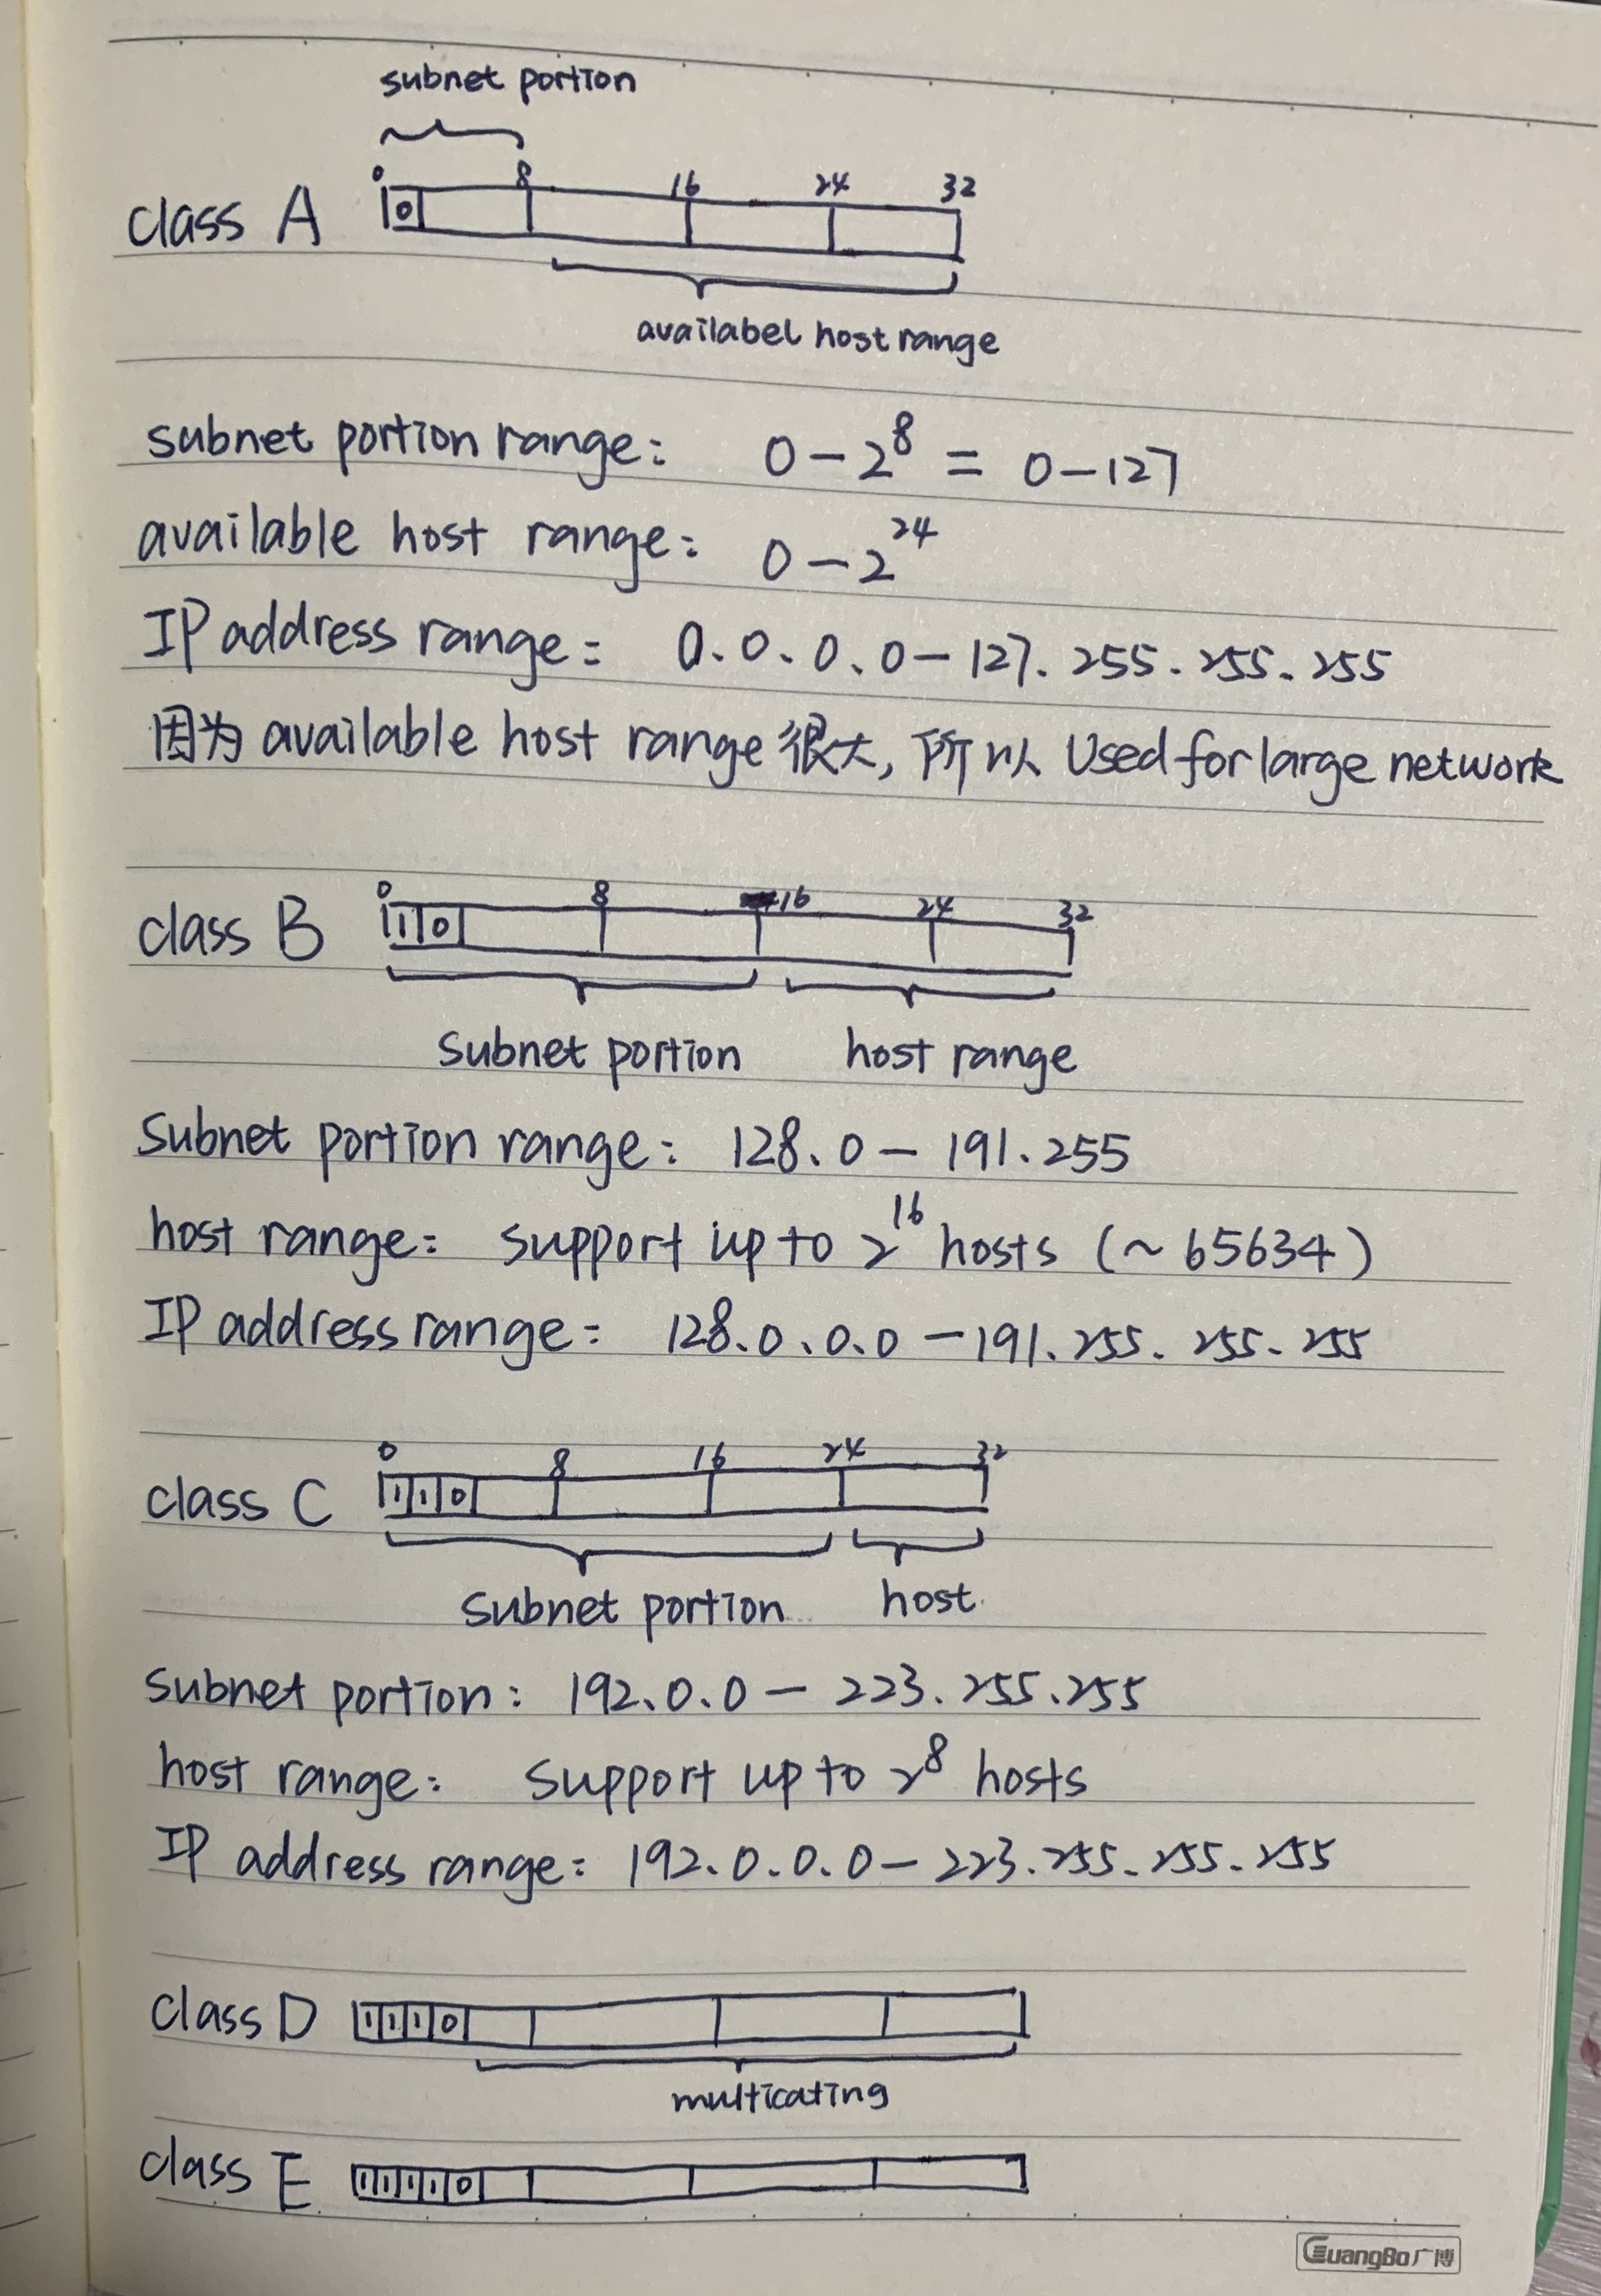 subnet portion
0 8 16 24 32
class A 0
availabel host range
subnet portion range: 0-2^8 = 0-127
available host range: 0-2^24
IP address range: 0.0.0.0-127.255.255.255
因为 available host range 很大, 所以 Used for large network
0 8 16 24 32
class B 1 0
Subnet portion host range
Subnet portion range: 128.0-191.255
host range: support up to 2^16 hosts (~65634)
IP address range: 128.0.0.0-191.255.255.255
0 8 16 24 32
class C 1 1 0
Subnet portion host
subnet portion: 192.0.0-223.255.255
host range: support up to 2^8 hosts
IP address range: 192.0.0.0-223.255.255.255
class D 1 1 1 0
multicating
class E 1 1 1 1 0
GuangBo广博